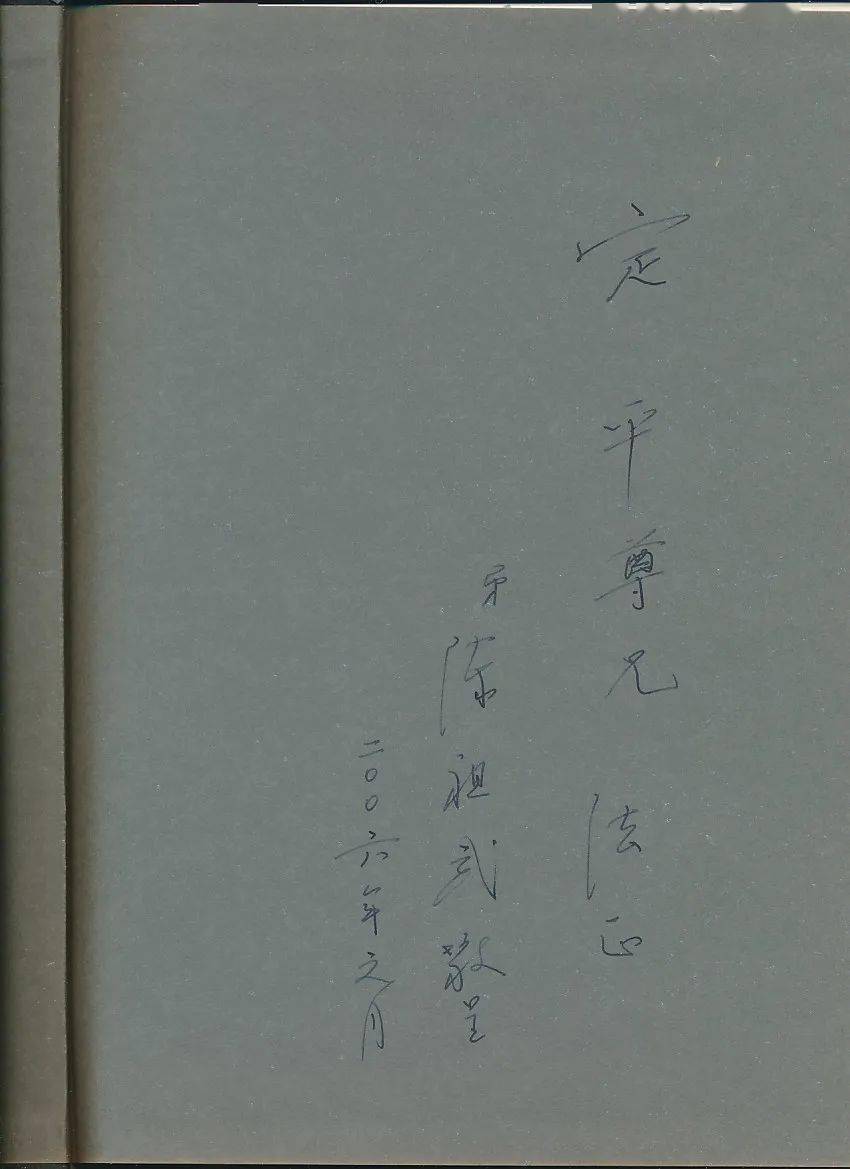 定平尊兄 法正
弟 陈祖武敬呈
二〇〇六年元月